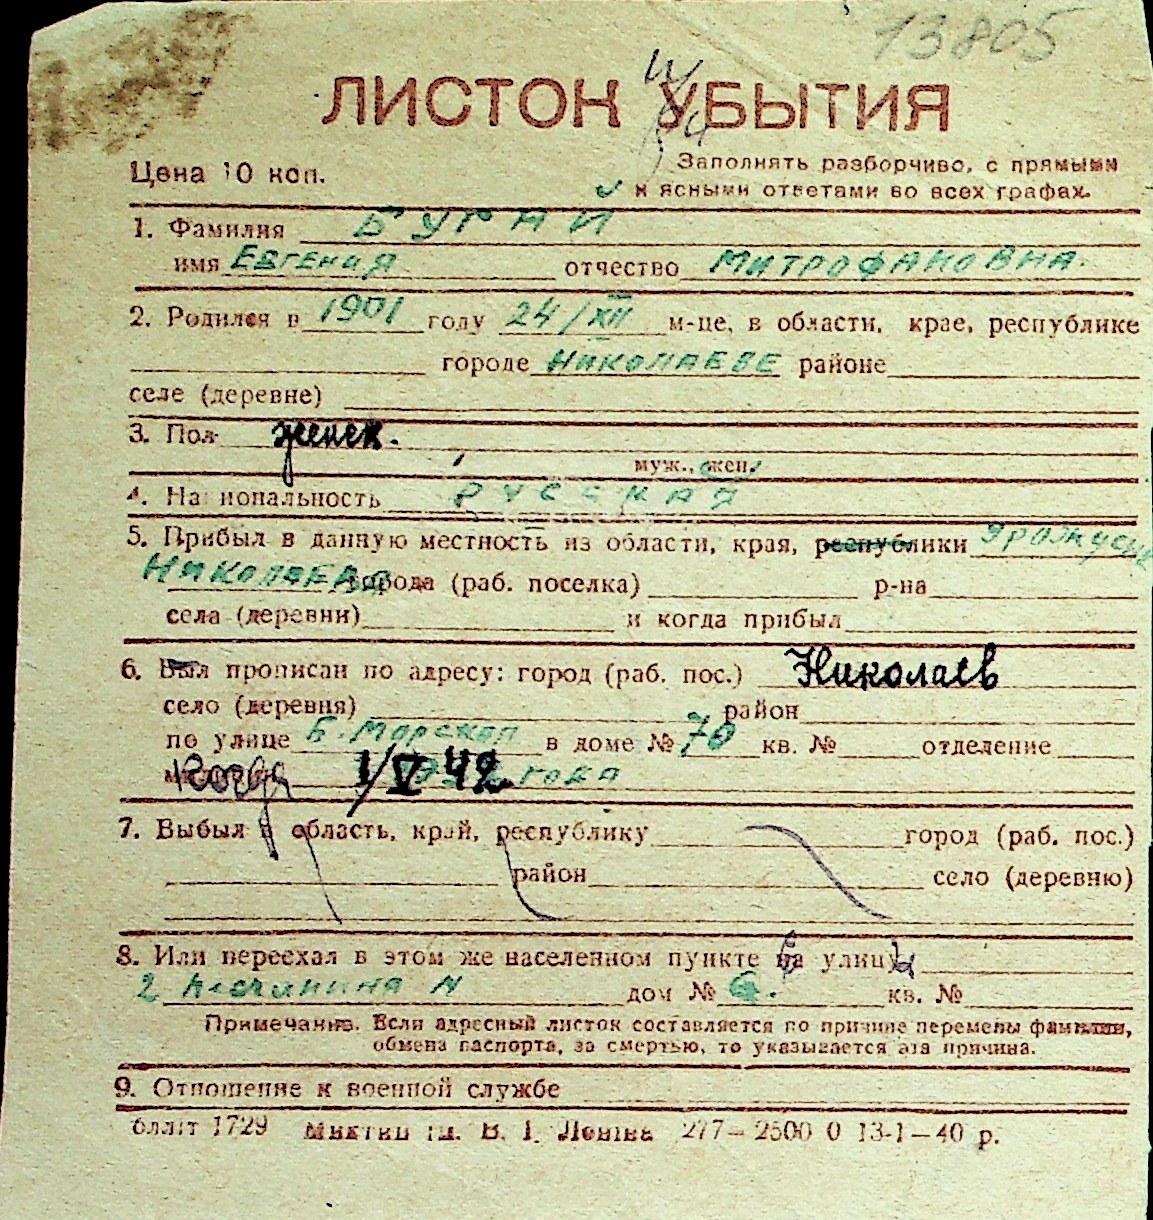 13805
ЛИСТОК УБЫТИЯ
Цена 10 коп.
Заполнять разборчиво, с прямыми
и ясными ответами во всех графах.
1. Фамилия БУГАЙ
имя ЕВГЕНИЯ отчество МИТРОФАНОВНА.
2. Родился в 1901 году 24/XII м-це, в области, крае, республике
городе НИКОЛАЕВЕ районе
селе (деревне)
3. Пол женск.
муж., жен.
4. Национальность русская
5. Прибыл в данную местность из области, края, республики
НИКОЛАЕВА города (раб. поселка) р-на
села (деревни) и когда прибыл
6. Был прописан по адресу: город (раб. пос.) Николаев
село (деревня) район
по улице Б. Морской в доме № 70 кв. № отделение
Когда 1/V 42 года
7. Выбыл в область, край, республику город (раб. пос.)
район село (деревню)
8. Или переехал в этом же населенном пункте на улицу
2 дом № 6. кв. №
Примечание. Если адресный листок составляется по причине перемены фамилии,
обмена паспорта, за смертью, то указывается эта причина.
9. Отношение к военной службе
1729 В. І. Леніна 277—2500 0 13-1—40 р.